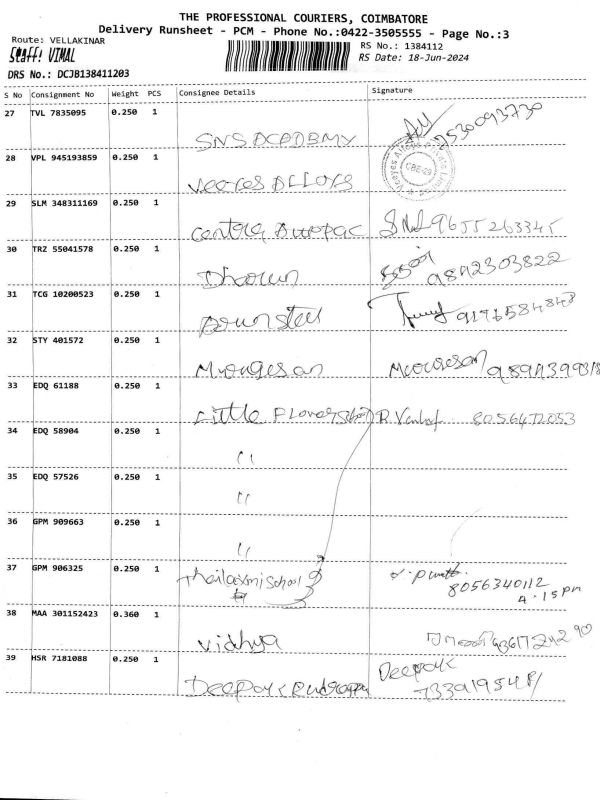 THE PROFESSIONAL COURIERS, COIMBATORE
Delivery Runsheet - PCM - Phone No.:0422-3505555 - Page No.:3
Route: VELLAKINAR
RS No.: 1384112
Staff: VIMAL
RS Date: 18-Jun-2024
DRS No.: DCJB138411203
S No Consignment No Weight PCS Consignee Details Signature
27 TVL 7835095 0.250 1
SNS ACADEMY
28 VPL 945193859 0.250 1
CBE-29
Veeyes Alloys
29 SLM 348311169 0.250 1
9655263345
30 TRZ 55041578 0.250 1
Dharun 9842303822
31 TCG 10200523 0.250 1
32 STY 401572 0.250 1
Murugesan
33 EDQ 61188 0.250 1
Little Flower School
34 EDQ 58904 0.250 1
"
35 EDQ 57526 0.250 1
"
36 GPM 909663 0.250 1
"
37 GPM 906325 0.250 1
School 8056340112
4.15 pm
38 MAA 301152423 0.360 1
Vidhya
39 HSR 7181088 0.250 1
Deepak
Deepak